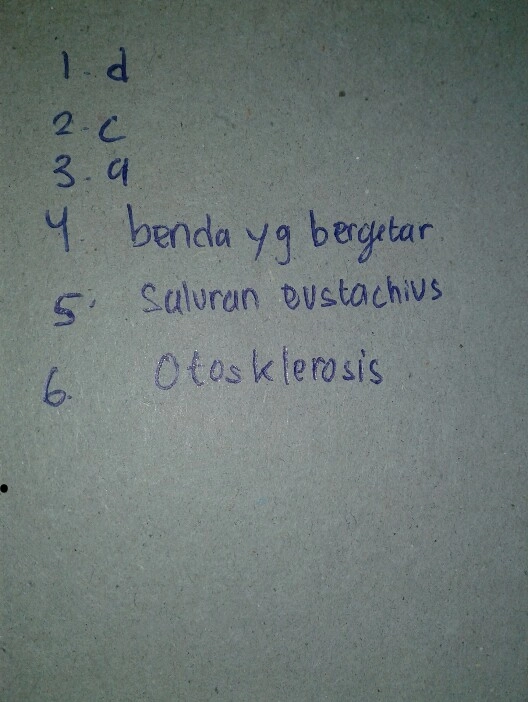 1. d
2. c
3. a
4. benda yg bergetar
5. Saluran eustachius
6. Otosklerosis